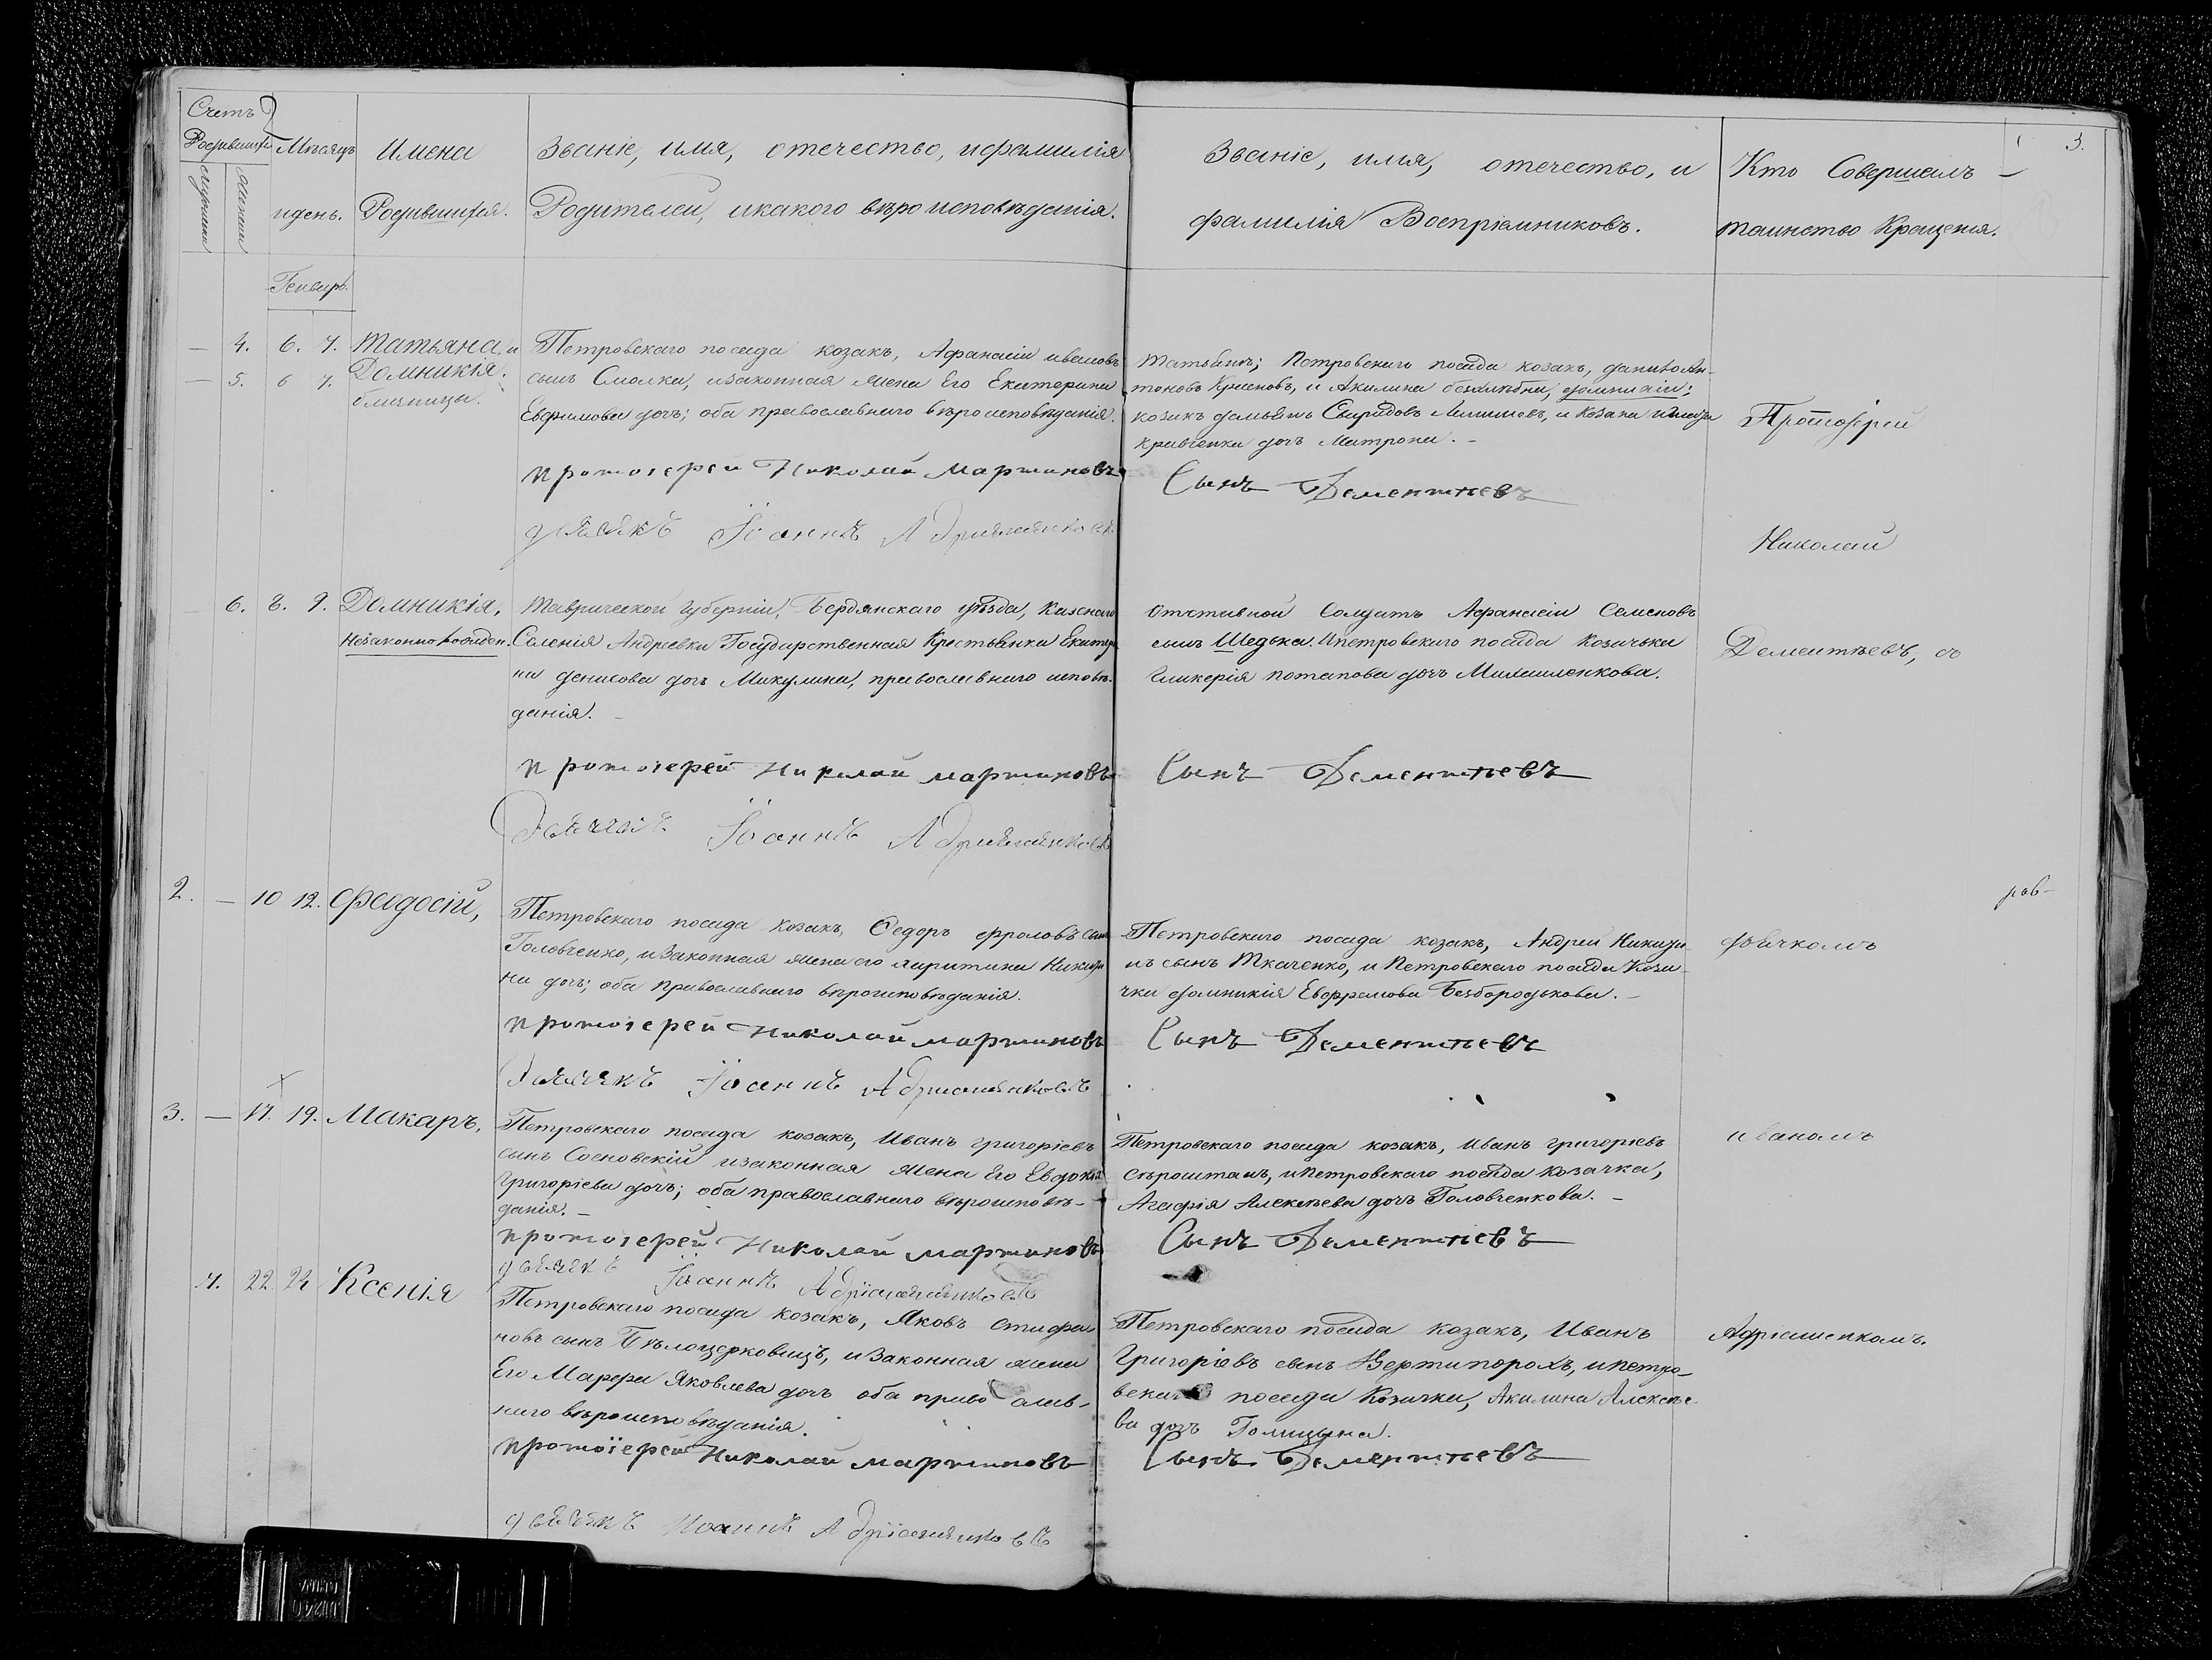 Счетъ
Родившихся
мужеска
женска
Мѣсяцъ
и день.
Имена
Родившихся.
Званіе, имя, отечество, и фамилія
Родителей, и какого вѣроисповѣданія.
Званіе, имя, отечество, и
фамилія Воспріемниковъ.
Кто Совершалъ
таинство Крещенія.
3.
Генварь.
— 4. 6. 7. Татьяна, и
— 5. 6 7. Домникія.
близницы.
Петровскаго посада козакъ, Афанасій ивановъ
сынъ Смолка, и законная жена Его Екатерина
Евфимова дочь; оба православнаго вѣроисповѣданія.
протоіерей Николай Мартиновъ
дьячекъ Іоаннъ
Татьянѣ; Петровскаго посада козакъ, данило Ан-
тоновъ и Акилина домникіи:
козакъ демьянъ Свиридовъ и козака
кравченка дочь Матрона. –
Сынъ Дементьевъ
Протоіерей
Николай
Дементьевъ, съ
6. 8. 9. Домникія,
Незаконнорожден.
Таврической губерніи, Бердянскаго уѣзда, Казеннаго
Селенія Андреевки Государственная Крестьянка Екатери
на денисова дочь Микулина, православнаго исповѣ-
данія. –
протоіерей Николай мартиновъ
Дьячекъ Іоаннъ
Отставной Солдатъ Афанасій Семеновъ
сынъ Шедька. И петровскаго посада Козачька
Гликерія потапова дочь
Сынъ Дементьевъ
2. — 10 12. Феодосій,
Петровскаго посада козакъ, Федоръ фроловъ сынъ
Головченко, и Законная жена его харитина Никити
на дочь; оба православнаго вѣроисповѣданія.
протоіерей Николай мартиновъ
Дьячекъ Іоаннъ
Петровскаго посада козакъ, Андрей Никити-
нъ сынъ Ткаченко, и Петровскаго посада Коза-
чка домникія Евфремова Безбородькова. –
Сынъ Дементьевъ
дьячкомъ
3. — 17. 19. Макаръ,
Петровскаго посада козакъ, Иванъ григоріевъ
сынъ Сосновскій и законная жена Его Евдокія
Григоріева дочь; оба православнаго вѣроисповѣ-
данія. –
протоіерей Николай мартиновъ
дьячекъ Іоаннъ
Петровскаго посада козакъ, Иванъ григоріевъ
Сѣроштанъ, и петровскаго посада козачка,
Агафія Алексѣева дочь Головченкова. –
Сынъ Дементьевъ
иваномъ
7. 22. 24 Ксенія
Петровскаго посада козакъ, Яковъ стефа
новъ сынъ Бѣлоцерковецъ, и Законная жена
Его Марфа Яковлева дочь оба православ-
наго вѣроисповѣданія.
протоіерей Николай мартиновъ
дьячекъ Иоаннъ
Петровскаго посада козакъ, Иванъ
Григоріевъ сынъ Вертипорохъ, и петро-
вскаго посада Козачка, Акилина Алексѣе-
ва дочь Голицына.
Сынъ Дементьевъ